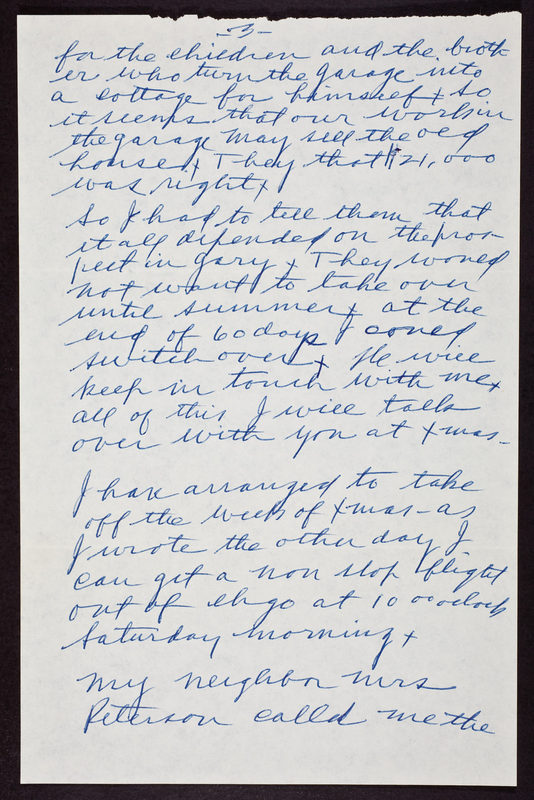 -3-
for the children and the broth
er who turn the garage into
a cottage for himself x So
it seems that our work in
the garage may sell the old
house x They that $21,000
was right x
So I had to tell them that
it all depended on the pros-
pect in Gary x They would
not want to take over
until summer x at the
end of 60 days I could
switch over x He will
keep in touch with me x
all of this I will talk
over with you at Xmas-
I have arranged to take
off the week of Xmas - as
I wrote the other day I
can get a non stop flight
out of chgo at 10 o'oclock
Saturday morning x
My neighbor Mrs
Peterson calld me the